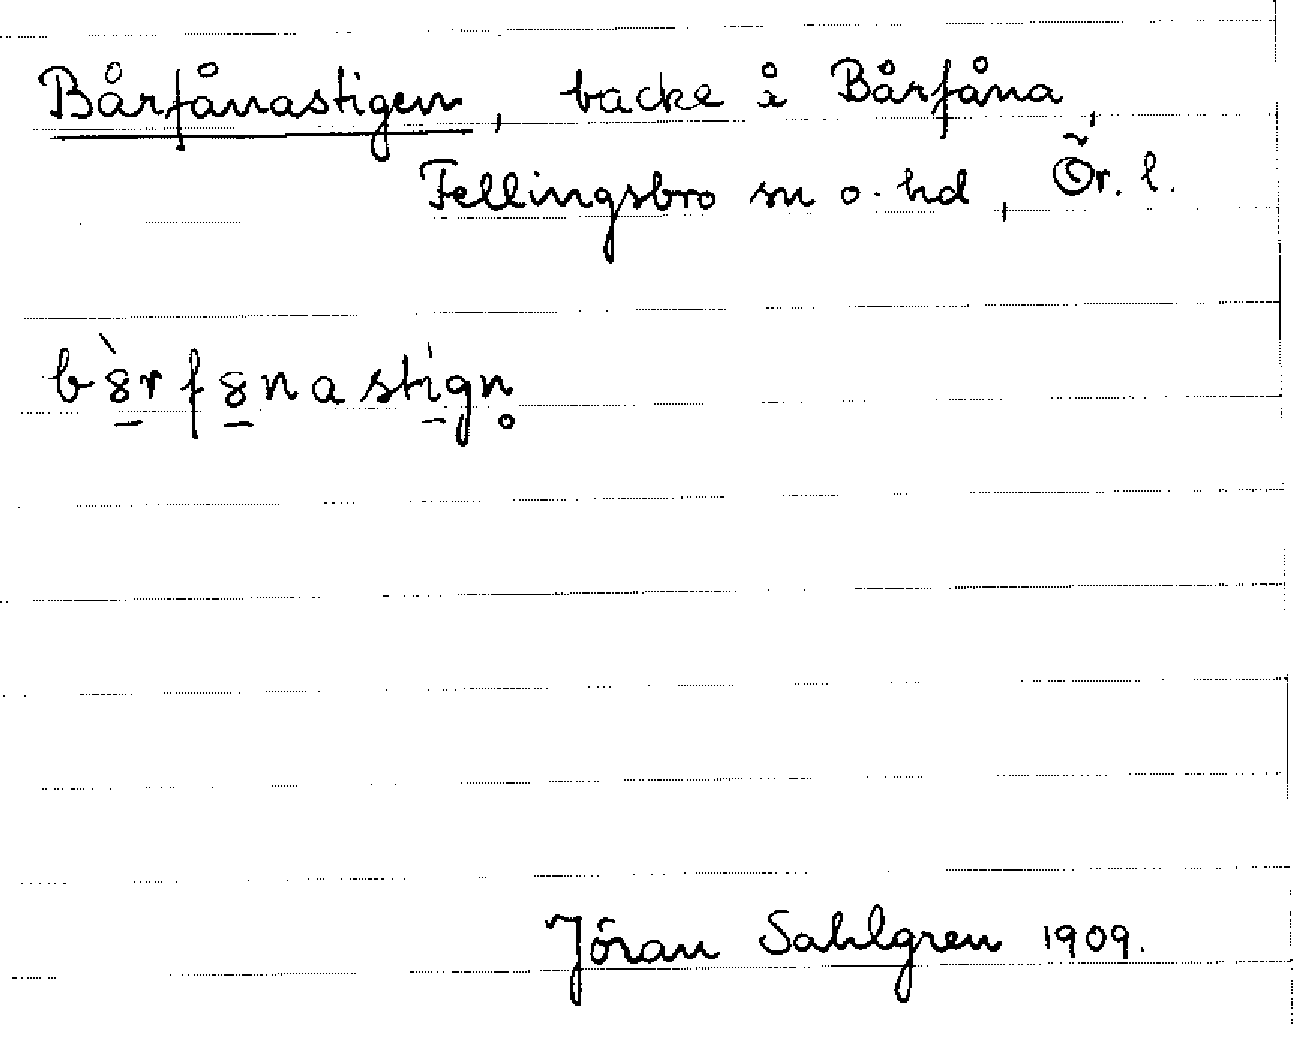 Bårfånastigen, backe i Bårfåna,
Fellingsbro sn o. hd, Ör. l.
bȣ̀rfȣnastígn̥
Jöran Sahlgren 1909.